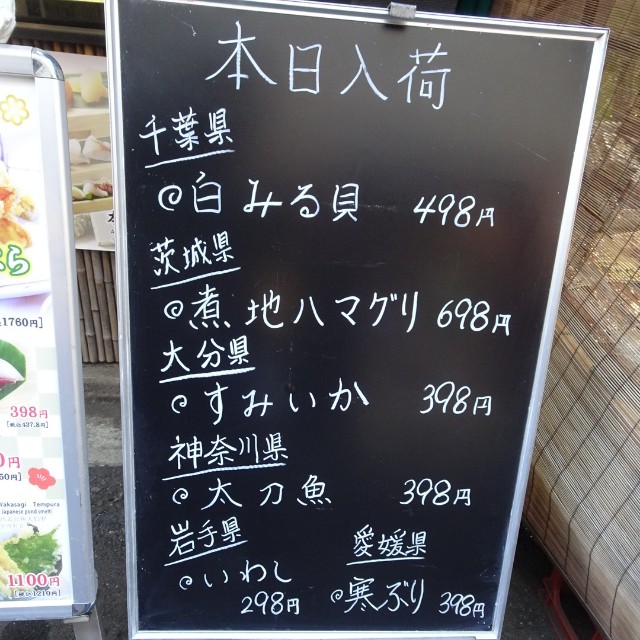 本日入荷
千葉県
白みる貝 498円
茨城県
煮地ハマグリ 698円
大分県
すみいか 398円
神奈川県
太刀魚 398円
岩手県
いわし
298円
愛媛県
寒ぶり 398円
1760円]
398円
[税込437.8円]
0円
Wakasagi Tempura
Japanese pond smelt
1100円
[税込1210円]